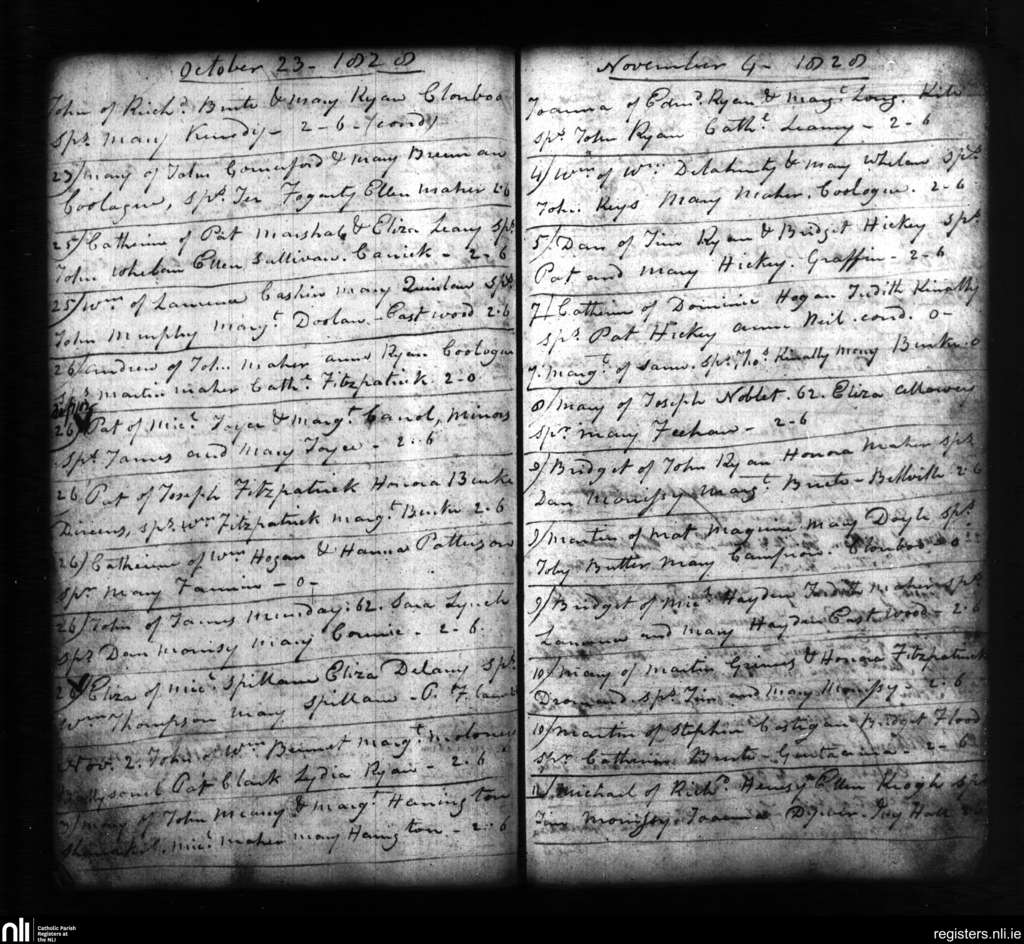 October 23 - 1828
John of Richd. Brute & Mary Ryan Clonboo
Spr. Mary Kenedy - 2-6 - (cond)
23/ Mary of John Comerford & Mary Brennan
Coologue, Sprs. Jer Fogarty Ellen Maher 2-6
25/ Catherine of Pat Marshal & Eliza Leary Sprs.
John Whelan Ellen Sullivan. Carrick - 2-6
25/ Wm. of Laurence Cashin Mary Quinlan Sprs.
John Murphy Margt. Doolan - Eastwood 2-6
26/ Andrew of John Maher Anne Ryan Coologue
Sprs. Martin Maher Cathe. Fitzpatrick. 2-0
26/ Pat of Micl. Joyce & Margt. Carrol, Minors
Sprs. James and Mary Joyce - 2-6
26/ Pat of Joseph Fitzpatrick Honora Burke
Sprs. Wm. Fitzpatrick Margt. Burke 2-6
26/ Catherine of Wm. Hogan & Hanna Patterson
Spr. Mary Fannin - 0 -
26/ John of James Munday: 62. Sara Lynch
Sprs. Dan Morrisy Mary - 2-6.
Eliza of Micl. Spillane Eliza Delany Sprs.
Wm. Thompson Mary Spillane -
Nov. 2. John of Wm. Bennet Margt. Moloney
Pat Clark Lydia Ryan - 2-6
3/ Mary of John Meany & Margt. Harrington
Micl. Maher Mary Harington - 2-6
November 4 - 1828
Joanna of Edmd. Ryan & Margt. Long. Kile
Sprs. John Ryan Cathe. Leamy - 2-6
4/ Wm. of Wm. Delahunty & Mary Whelan Sprs.
John Keys Mary Maher. Coologue. 2-6
5/ Dan of Tim Ryan & Bridget Hickey Sprs.
Pat and Mary Hickey. Graffin - 2-6
7/ Catherine of Dominic Hogan Judith Kinally
Sprs. Pat Hickey Anne Neil. cond. 0 -
7. Margt. of same. Sprs. Thos. Kinally Mary Burke. 0
8/ Mary of Joseph Noblet. 62. Eliza
Spr. Mary Feehan - 2-6
9/ Bridget of John Ryan Honora Maher Sprs.
Dan Morrissy Margt. Brute - Bellville 2-6
9/ Martin of Mat Maguire Mary Doyle Sprs.
Toby Butler Mary Campion - Clonboo - 0 -
9/ Bridget of Micl. Hayden Judith Maher Sprs.
Laurence and Mary Hayden Eastwood - 2-6
10/ Mary of Martin Grimes & Honora Fitzpatrick
Dromard Sprs. Tim and Mary Morrissy - 2-6
10/ Martin of Stephen Costigan Bridget Flood
Spr. Catherine Brute - - 2-6
11/ Michael of Richd. Henesy Ellen Keogh Sprs.
Tim Morrissy. Joanna Dwyer. Ivy Hall
nli
Catholic Parish
Registers at
the NLI
registers.nli.ie